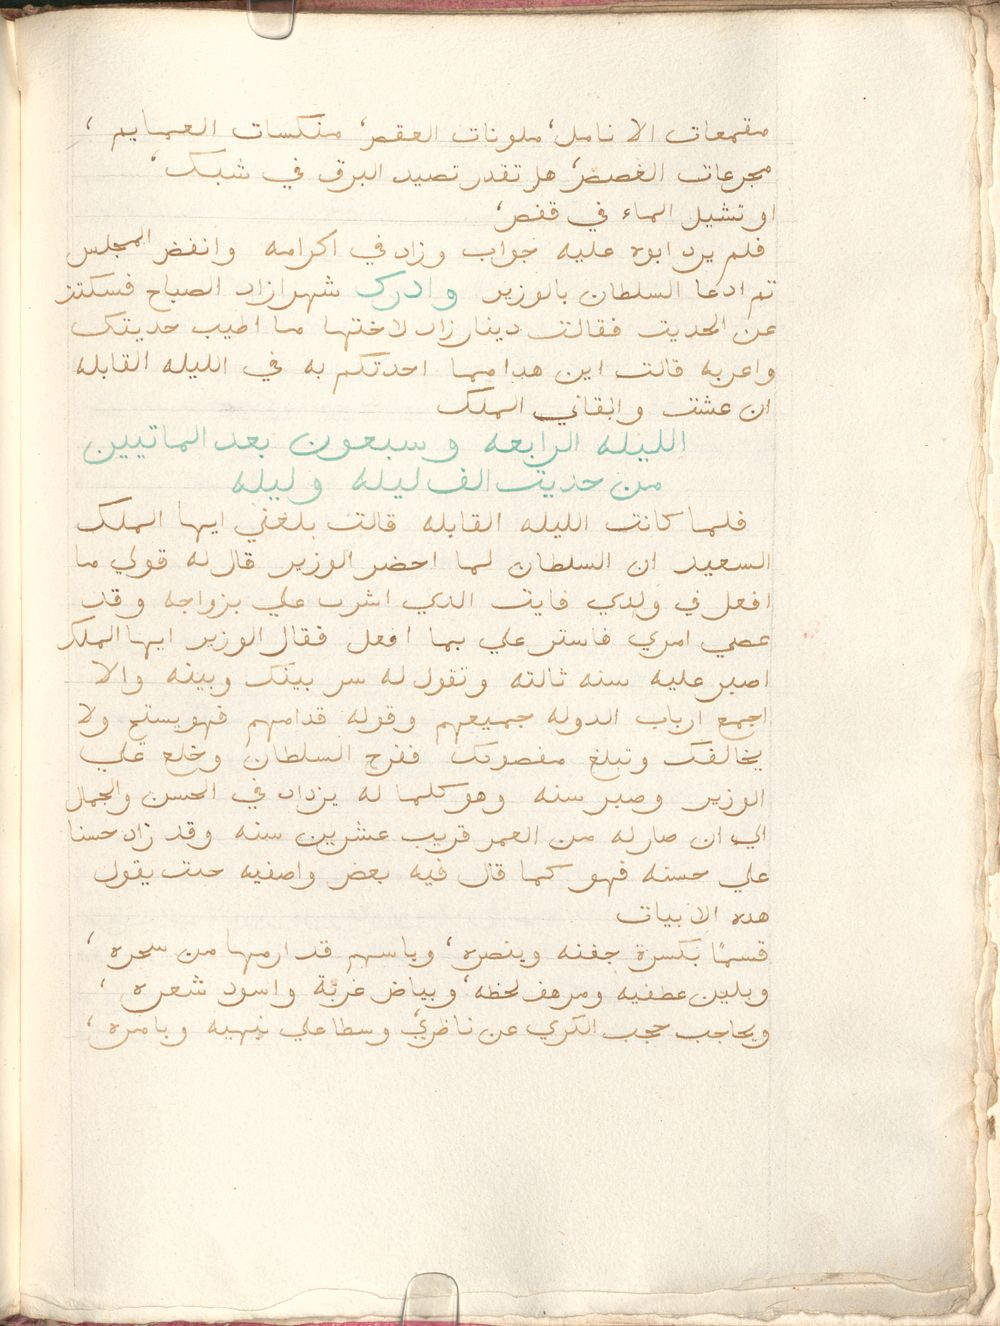 مقمعات الانامل، ملونات العقص، منكسات العمايم،
مجرعات الغصص، هل تقدر تصيد البرق في شبك،
او تشيل الماء في قفص،
فلم يرد ابوه عليه جواب وزاد في اكرامه وانفض المجلس
تم ادعا السلطان بالوزير وادرك شهرازاد الصباح فسكتت
عن الحديت فقالت دينارزاد لاختها ما اطيب حديتك
واعربه قالت اين هدا مما احدتكم به في الليله القابله
ان عشت وابقاني الملك
الليله الرابعه وسبعون بعد الماتيين
من حديت الف ليله وليله
فلما كانت الليله القابله قالت بلغني ايها الملك
السعيد ان السلطان لما احضر الوزير قال له قولي ما
افعل في ولدي فايت الدي اشرت علي بزواجه وقد
عصي امري فاستر علي بما افعل فقال الوزير ايها الملك
اصبر عليه سنه تالته وتقول له سر بينك وبينه والا
اجمع ارباب الدوله جميعهم وقوله قدامهم فهو يستح ولا
يخالفك وتبلغ مقصودك ففرح السلطان وخلع علي
الوزير وصبر سنه وهو كلما له يزداد في الحسن والجمال
الي ان صار له من العمر قريب عشرين سنه وقد زاد حسنا
علي حسنه فهو كما قال فيه بعض واصفيه حيت يقول
هده الابيات
قسمًا بكسرة جفنه وينصره، وباسهم قد ارمها من سحره،
وبلين عطفيه ومرهف لحظه، وبياض غرّته واسود شعره،
وبحاجب حجب الكري عن ناظري، وسطا علي بنهيه وبامره،